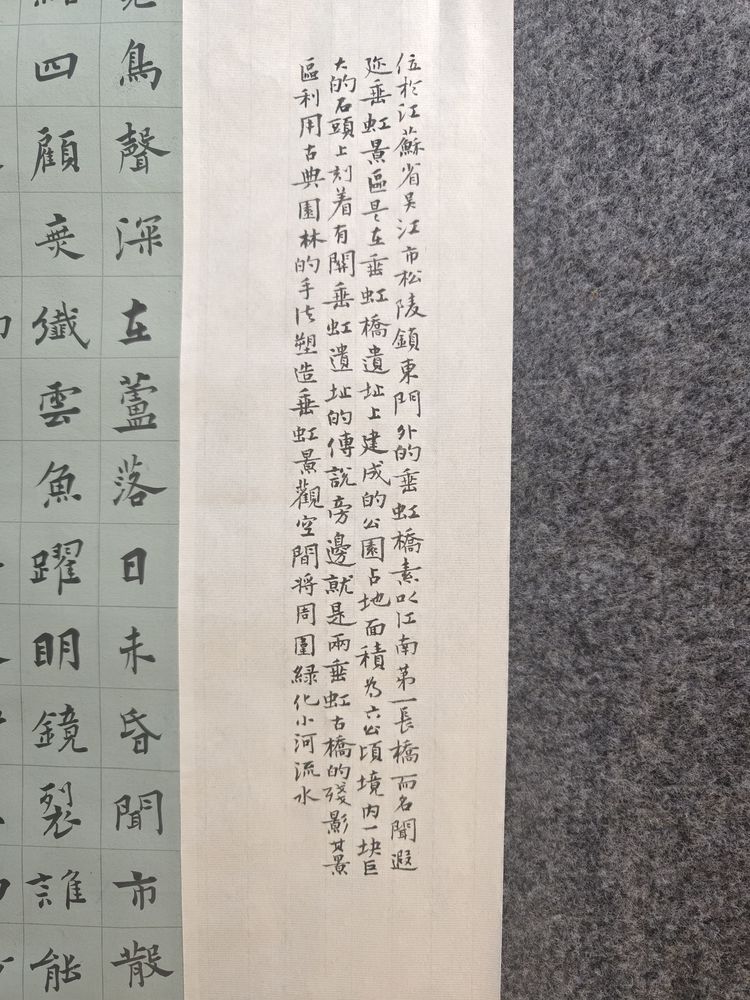 位於江蘇省吳江市松陵鎮東門外的垂虹橋素以江南第一長橋而名聞遐
迩垂虹景區是在垂虹橋遺址上建成的公園占地面積為六公頃境内一块巨
大的石頭上刻着有關垂虹遺址的傳說旁邊就是兩垂虹古橋的殘影其景
區利用古典園林的手法塑造垂虹景觀空間将周圍綠化小河流水
鳥聲深在蘆落日未昏聞市散
四顧無纖雲魚躍明鏡裂誰能